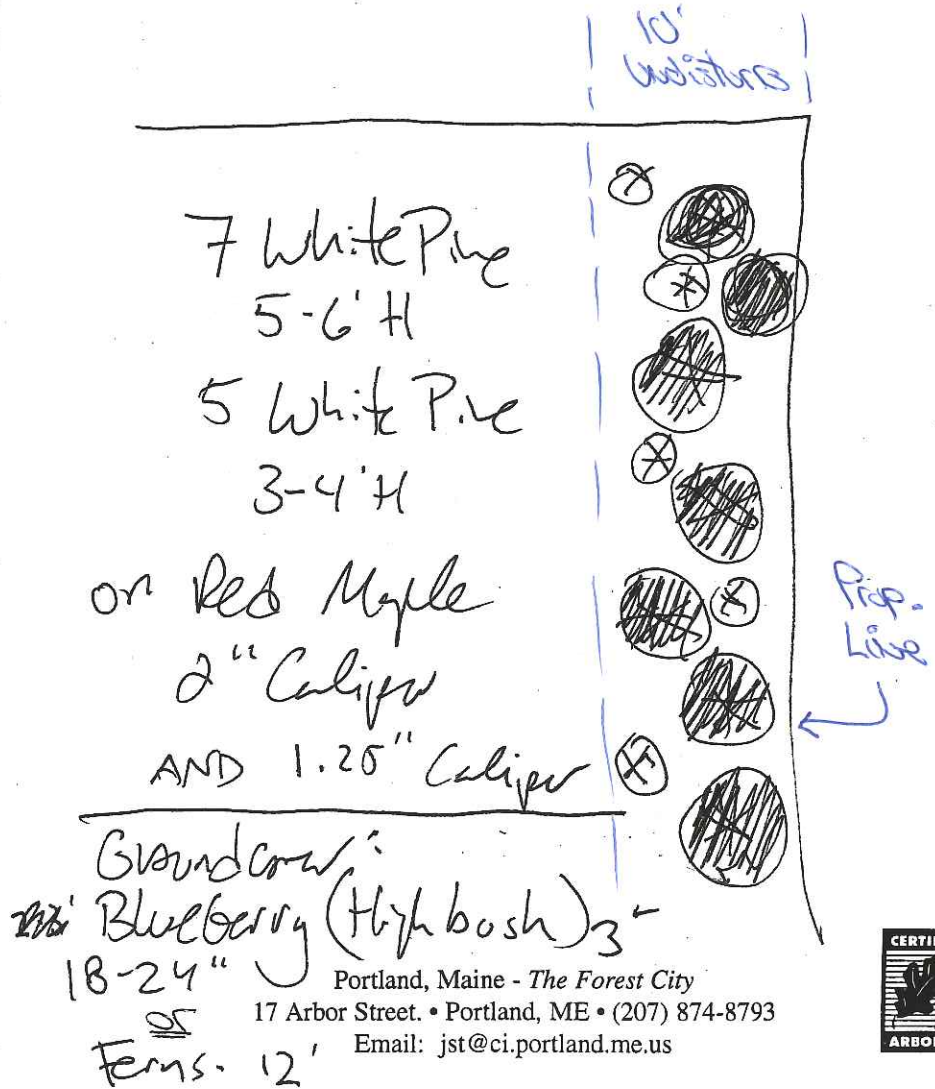 10'
Undisturb
7 White Pine
5-6' H
5 White Pine
3-4' H
or Red Maple
2" Caliper
AND 1.25" Caliper
Prop.
Line
Groundcover:
Blueberry (Highbush) 3
18-24"
or
Ferns. 12'
Portland, Maine - The Forest City
17 Arbor Street. • Portland, ME • (207) 874-8793
Email: jst@ci.portland.me.us